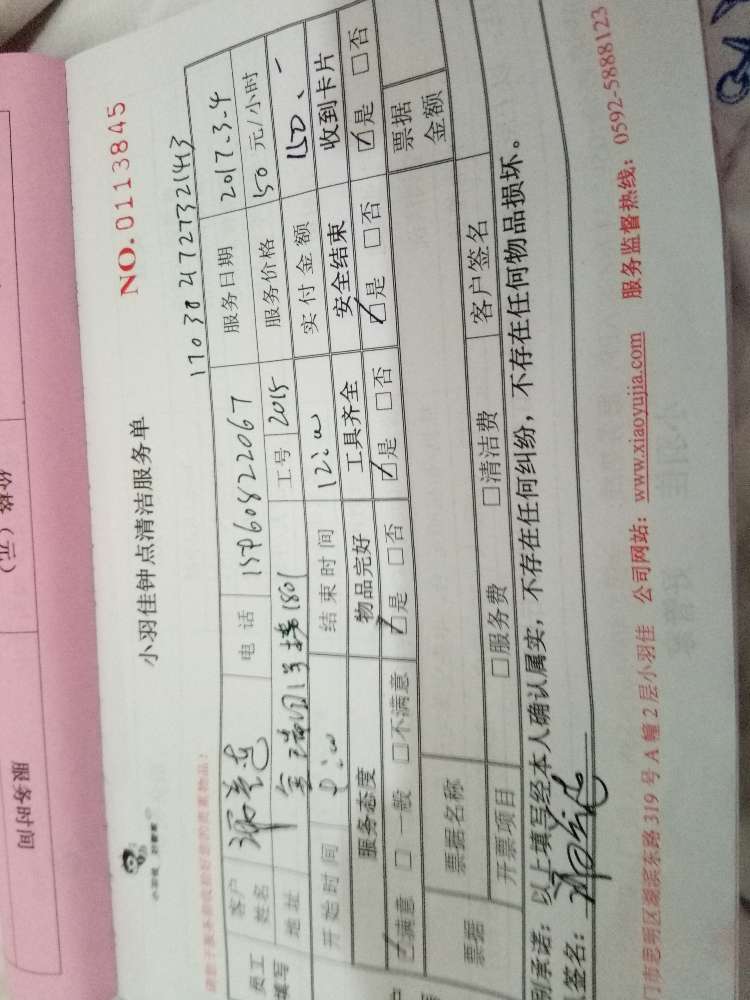 价格（元）
服务时间
NO.0113845
小羽佳钟点清洁服务单
小羽佳
1703021727321413
员工填写
客户姓名 电话 15960822067 服务日期 2017.3.4
地址 1801 工号 2015 服务价格 50 元/小时
开始时间 结束时间 12:00 实付金额 150.-
服务态度 物品完好 工具齐全 安全结束 收到卡片
☑满意 □一般 □不满意 ☑是 □否 ☑是 □否 ☑是 □否 ☑是 □否
票据 票据名称 票据金额
开票项目 □服务费 □清洁费 客户签名
别承诺：以上填写经本人确认属实，不存在任何纠纷，不存在任何物品损坏。
签名：
门市思明区湖滨东路 319 号 A 幢 2 层小羽佳 公司网站：www.xiaoyujia.com 服务监督热线：0592-5888123